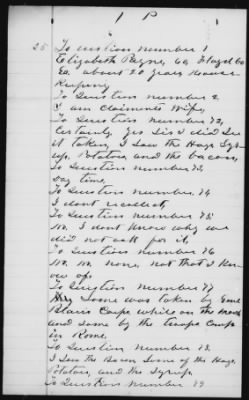 1 P 1
25 To question number 1
Elizabeth Payne, 62 Floyd Co
Ga. about 20 years House
Keeping
To Question number 2
I am Claimants Wife,
To Question number 72,
Certainly yes Sir I did See
it taken, I Saw the Hogs Syr-
up, Potatoes, and the bacon,
To Question number 73,
Day time,
To Question number 74
I dont recollect,
To Question number 75
No. I dont Know why we
did not ask for it,
To Question number 76
No. no none, not that I kn-
ow of.
To Question number 77
Some was taken by Genl
Blairs Corps while on the march
and some by the troops Camp
in Rome,
To Question number 78.
I Saw the Bacon Some of the Hogs,
Potatoes, and the Syrup.
To Question number 79